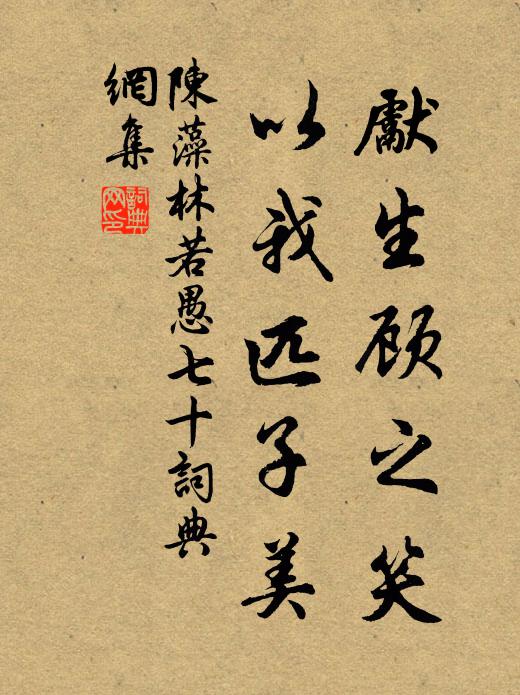 獻生顾之笑
以我匹子美
陳藻林若愚七十詞典
網集
詞典
网印